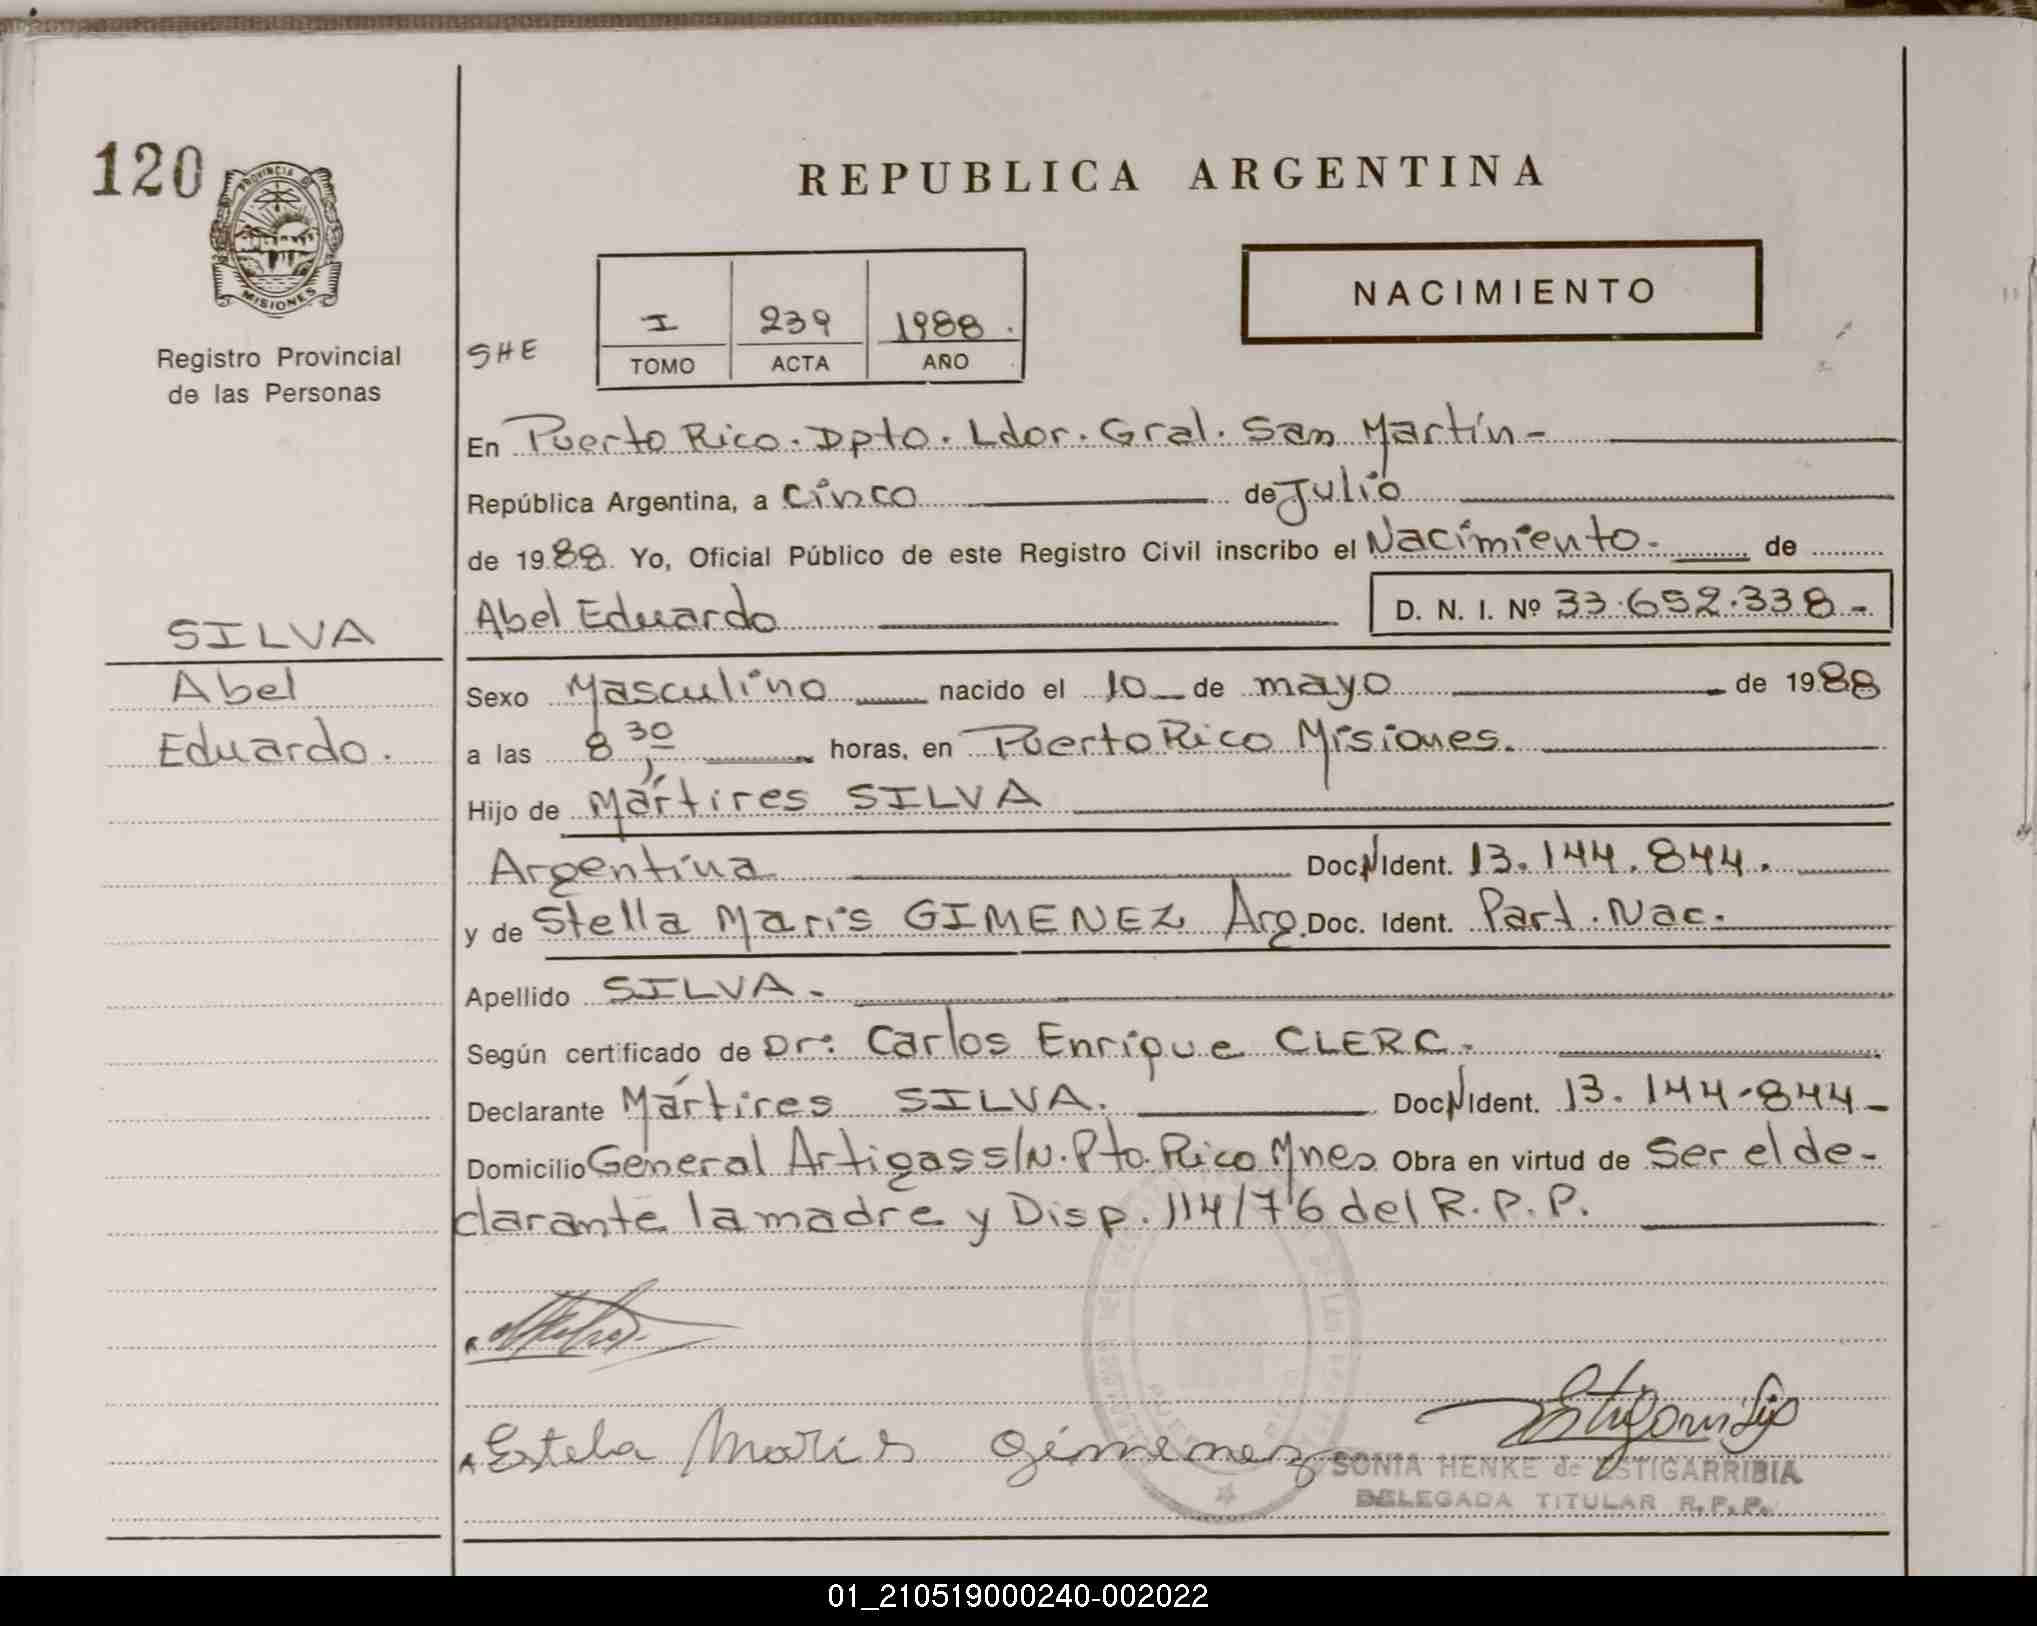 120
PROVINCIA DE
MISIONES
Registro Provincial
de las Personas
REPUBLICA ARGENTINA
NACIMIENTO
SHE
I 239 1988.
TOMO ACTA AÑO
En Puerto Rico. Dpto. Ldor. Gral. San Martín-
República Argentina, a cinco de Julio
de 1988. Yo, Oficial Público de este Registro Civil inscribo el Nacimiento. de
Abel Eduardo D. N. I. Nº 33.652.338-
SILVA
Abel
Eduardo.
Sexo Masculino nacido el 10 de mayo de 1988
a las 8 30 horas, en Puerto Rico Misiones.
Hijo de Mártires SILVA
Argentina Doc. N Ident. 13.144.844.
y de Stella Maris GIMENEZ Arg. Doc. Ident. Part. Nac.
Apellido SILVA.
Según certificado de Dr: Carlos Enrique CLERC.
Declarante Mártires SILVA. Doc. N Ident. 13.144.844-
Domicilio General Artigas s/N. Pto. Rico Mnes Obra en virtud de Ser el de-
clarante la madre y Disp. 114/76 del R.P.P.
Estela Maris Gimenez
SONIA HENKE de ESTIGARRIBIA
DELEGADA TITULAR R.P.P.
01_210519000240-002022